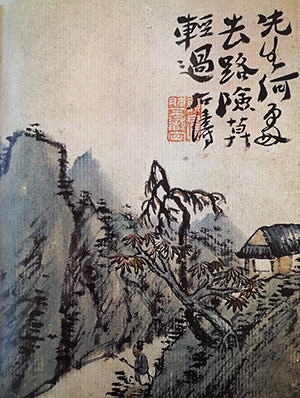 先生何處
去路險莫
輕過石濤